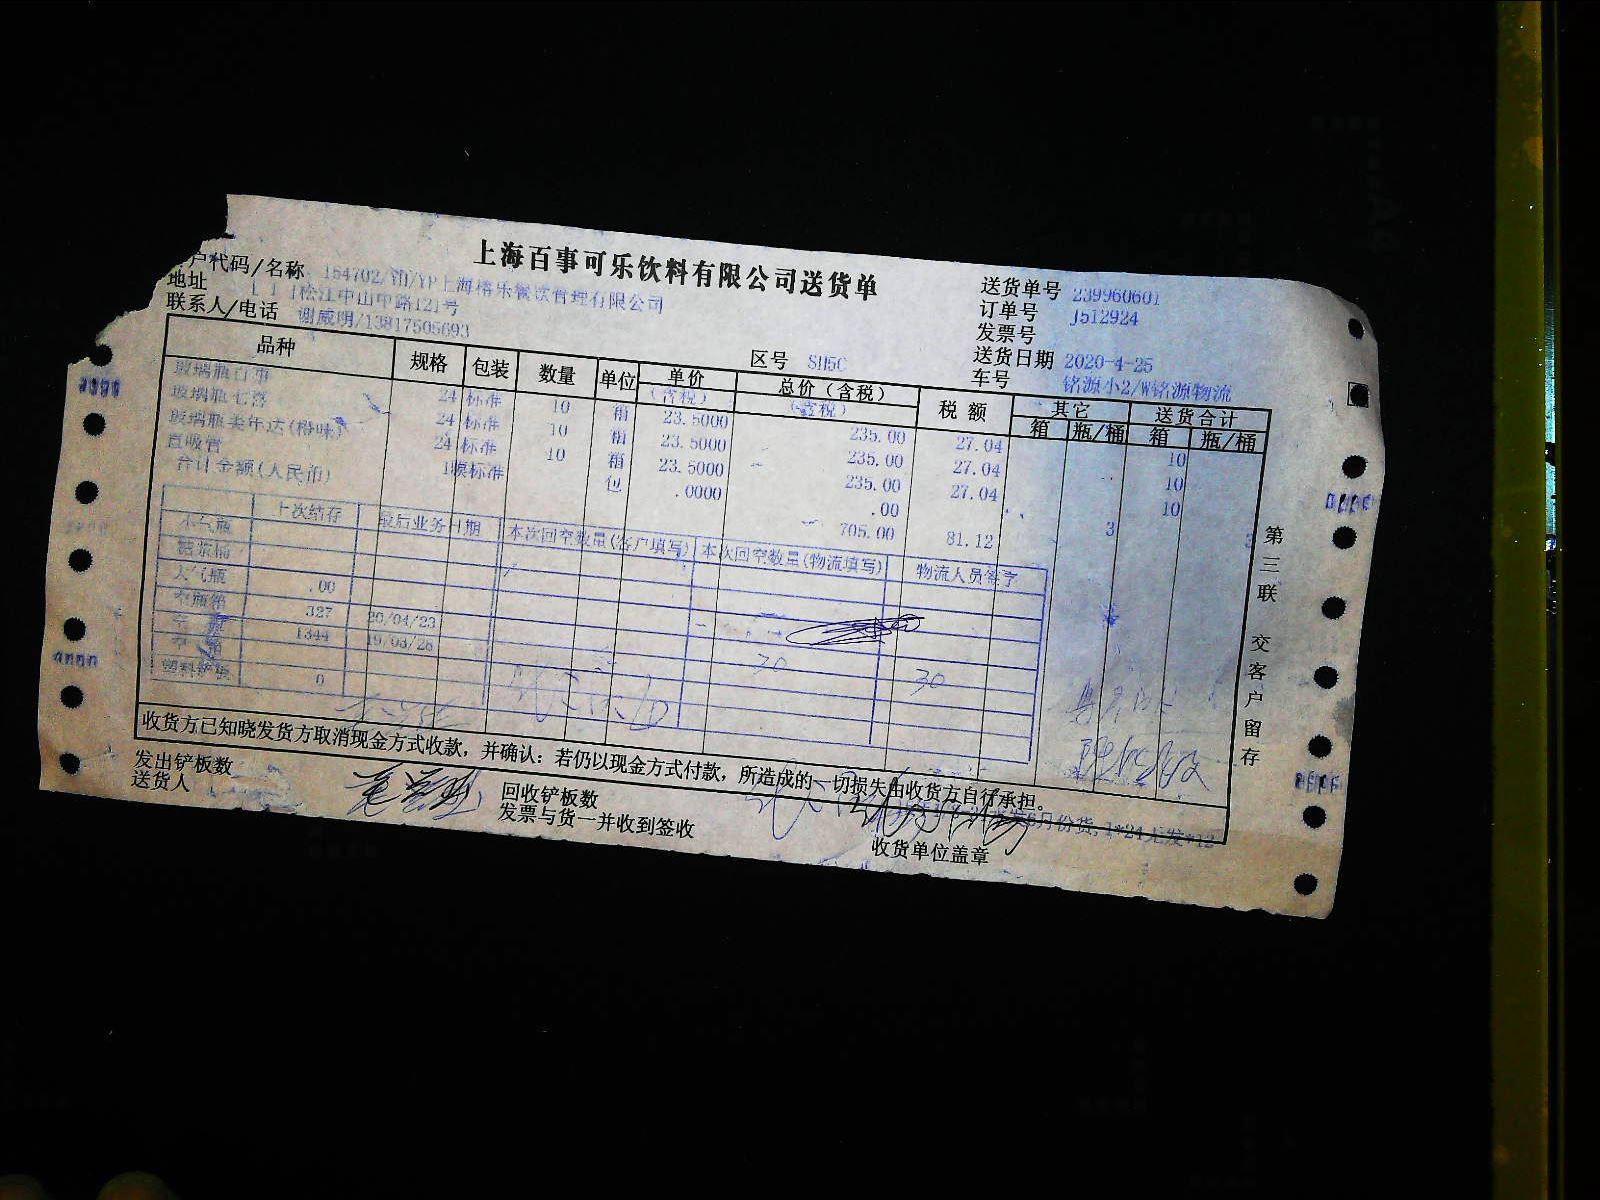 上海百事可乐饮料有限公司送货单
户代码/名称 154702/ /YP上海 乐餐饮管理有限公司
地址 松江中山中路121号
联系人/电话 谢威明/13817505693
送货单号 239960601
订单号 J512924
发票号
区号 SH5C 送货日期 2020-4-25
车号 铭源小2/W铭源物流
品种 规格 包装 数量 单位 单价(含税) 总价(含税) 税额 其它 送货合计
(含税) 箱 瓶/桶 箱 瓶/桶
玻璃瓶百事 24 标准 10 箱 23.5000 235.00 27.04 10
玻璃瓶七喜 24 标准 10 箱 23.5000 235.00 27.04 10
玻璃瓶美年达(橙味) 24 标准 10 箱 23.5000 235.00 27.04 10
直吸管 1 标准 包 .0000 .00 3 3
合计金额(人民币) 705.00 81.12
上次结存 最后业务日期 本次回空数量(客户填写) 本次回空数量(物流填写) 物流人员签字
木气瓶
糖浆桶
大气瓶 .00
空瓶箱 327 20/04/23
1344 19/03/28 30 30
塑料铲板 0
收货方已知晓发货方取消现金方式收款，并确认：若仍以现金方式付款，所造成的一切损失由收货方自行承担。
发出铲板数 回收铲板数 月份货,1*24无发*12
送货人 发票与货一并收到签收 收货单位盖章
第三联 交客户留存